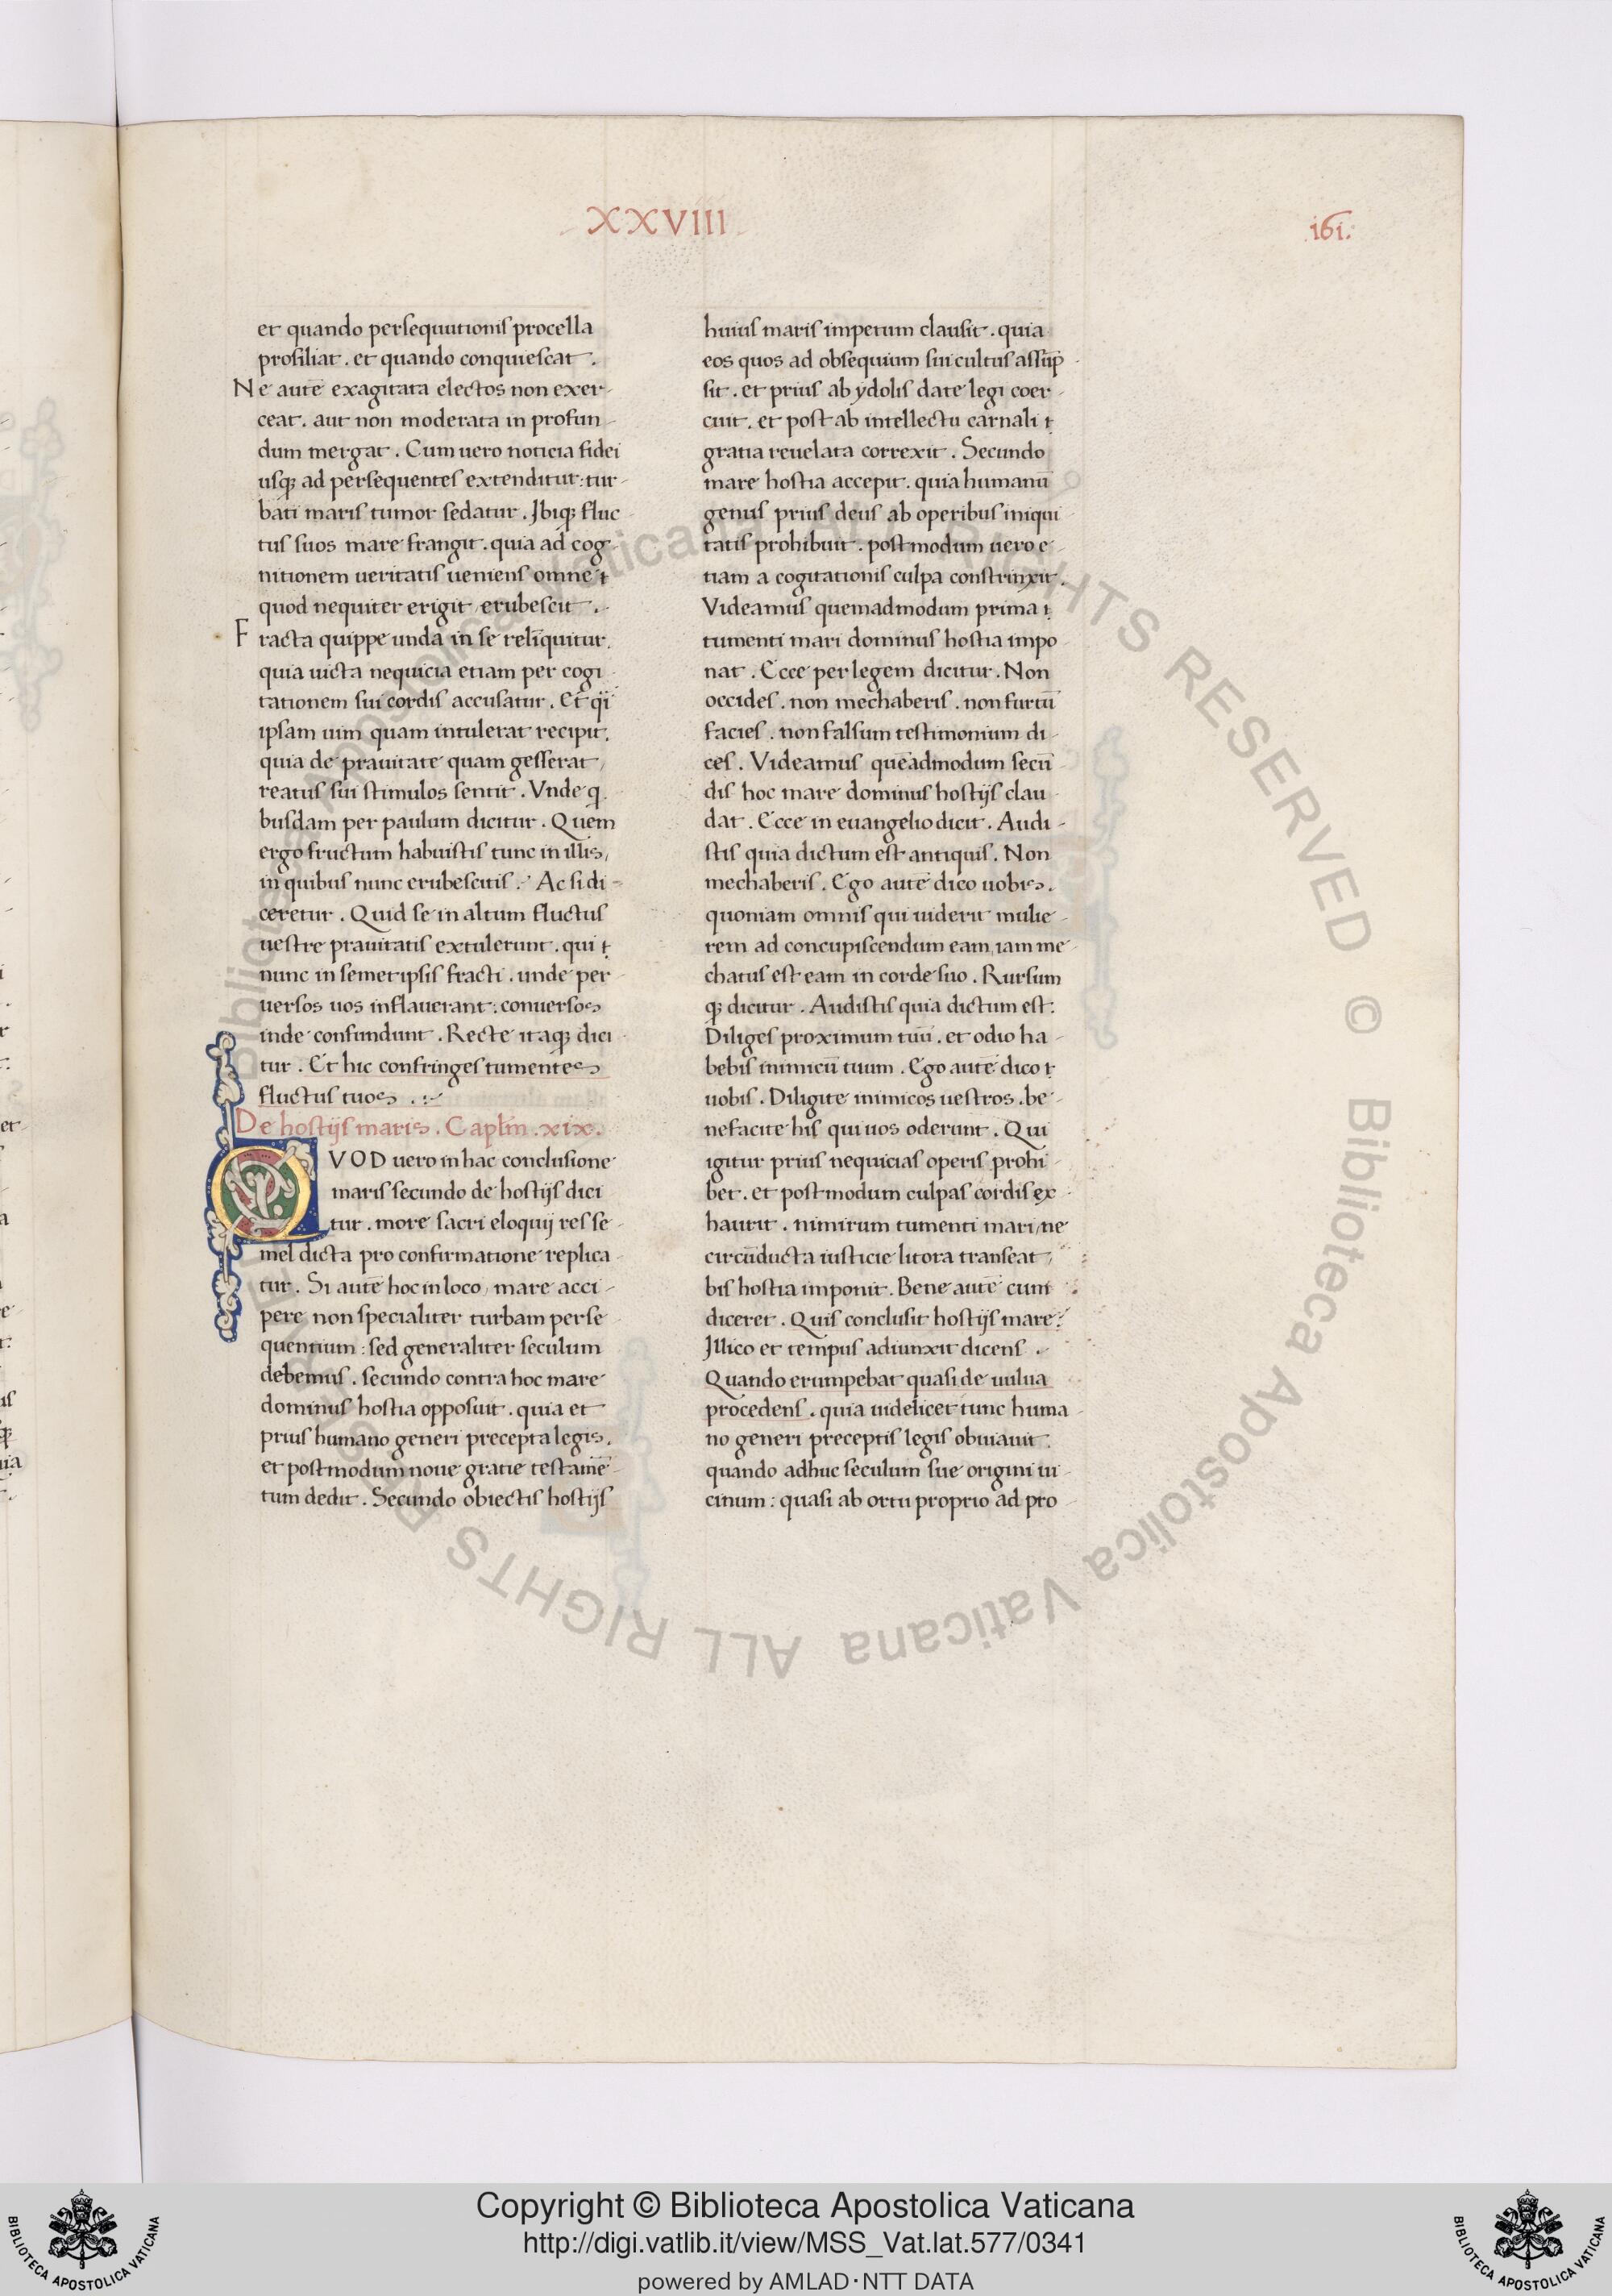 XXVIII
161.
et quando persequutionis procella
prosiliat. et quando conquiescat.
Ne autē exagitata electos non exer-
ceat. aut non moderata in profun-
dum mergat. Cum uero noticia fidei
usq; ad persequentes extenditur: tur-
bati maris tumor sedatur. Ibiq; fluc
tus suos mare frangit. quia ad cog-
nitionem ueritatis ueniens omne
quod nequiter erigit, erubescit.
Fracta quippe unda in se relinquitur.
quia uicta nequicia etiam per cogi
tationem sui cordis accusatur. Et qi
ipsam uim quam intulerat recipit.
quia de prauitate quam gesserat,
reatus sui stimulos sentit. Vnde q
busdam per paulum dicitur. Quem
ergo fructum habuistis tunc in illis,
in quibus nunc erubescitis. Ac si di-
ceretur. Quid se in altum fluctus
uestre prauitatis extulerunt. qui
nunc in semetipsis fracti. unde per-
uersos uos inflauerant: conuersos
inde confundunt. Recte itaq; dici
tur. Et hic confringes tumentes
fluctus tuos.
De hostijs maris. Caplm̄ .xix.
QVOD uero in hac conclusione
maris secundo de hostijs dici
tur. more sacri eloquij res se-
mel dicta pro confirmatione replica-
tur. Si autē hoc in loco, mare acci-
pere non specialiter turbam perse
quentium: sed generaliter seculum
debemus. secundo contra hoc mare
dominus hostia opposuit. quia et
prius humano generi precepta legis.
et postmodum noue gratie testamē-
tum dedit. Secundo obiectis hostijs
huius maris impetum clausit. quia
eos quos ad obsequium sui cultus assūp-
sit. et prius ab ydolis date legi coer-
cuit. et post ab intellectu carnali
gratia reuelata correxit. Secundo
mare hostia accepit. quia humanū
genus prius deus ab operibus iniqui
tatis prohibuit. postmodum uero e-
tiam a cogitationis culpa constrinxit.
Videamus quemadmodum prima
tumenti mari dominus hostia impo
nat. Ecce per legem dicitur. Non
occides. non mechaberis. non furtū
facies. non falsum testimonium di-
ces. Videamus quēadmodum secū
dis hoc mare dominus hostijs clau
dat. Ecce in euangelio dicit. Audi-
stis quia dictum est antiquis. Non
mechaberis. Ego autē dico uobis.
quoniam omnis qui uiderit mulie-
rem ad concupiscendum eam, iam me-
chatus est eam in corde suo. Rursum
q; dicitur. Audistis quia dictum est.
Diliges proximum tuū. et odio ha-
bebis inimicū tuum. Ego autē dico
uobis. Diligite inimicos uestros. be-
nefacite his qui uos oderunt. Qui
igitur prius nequicias operis prohi
bet. et postmodum culpas cordis ex
haurit. nimirum tumenti mari, ne
circūducta iusticie litora transeat,
bis hostia imponit. Bene autē cum
diceret. Quis conclusit hostijs mare?
Illico et tempus adiunxit dicens.
Quando erumpebat quasi de uulua
procedens. quia uidelicet tunc huma-
no generi preceptis legis obuiauit.
quando adhuc seculum sue origini ui-
cinum: quasi ab ortu proprio ad pro-
Biblioteca Apostolica Vaticana ALL RIGHTS RESERVED © Biblioteca Apostolica Vaticana ALL RIGHTS RESERVED
Copyright © Biblioteca Apostolica Vaticana
http://digi.vatlib.it/view/MSS_Vat.lat.577/0341
powered by AMLAD·NTT DATA
BIBLIOTECA APOSTOLICA VATICANA
BIBLIOTECA APOSTOLICA VATICANA